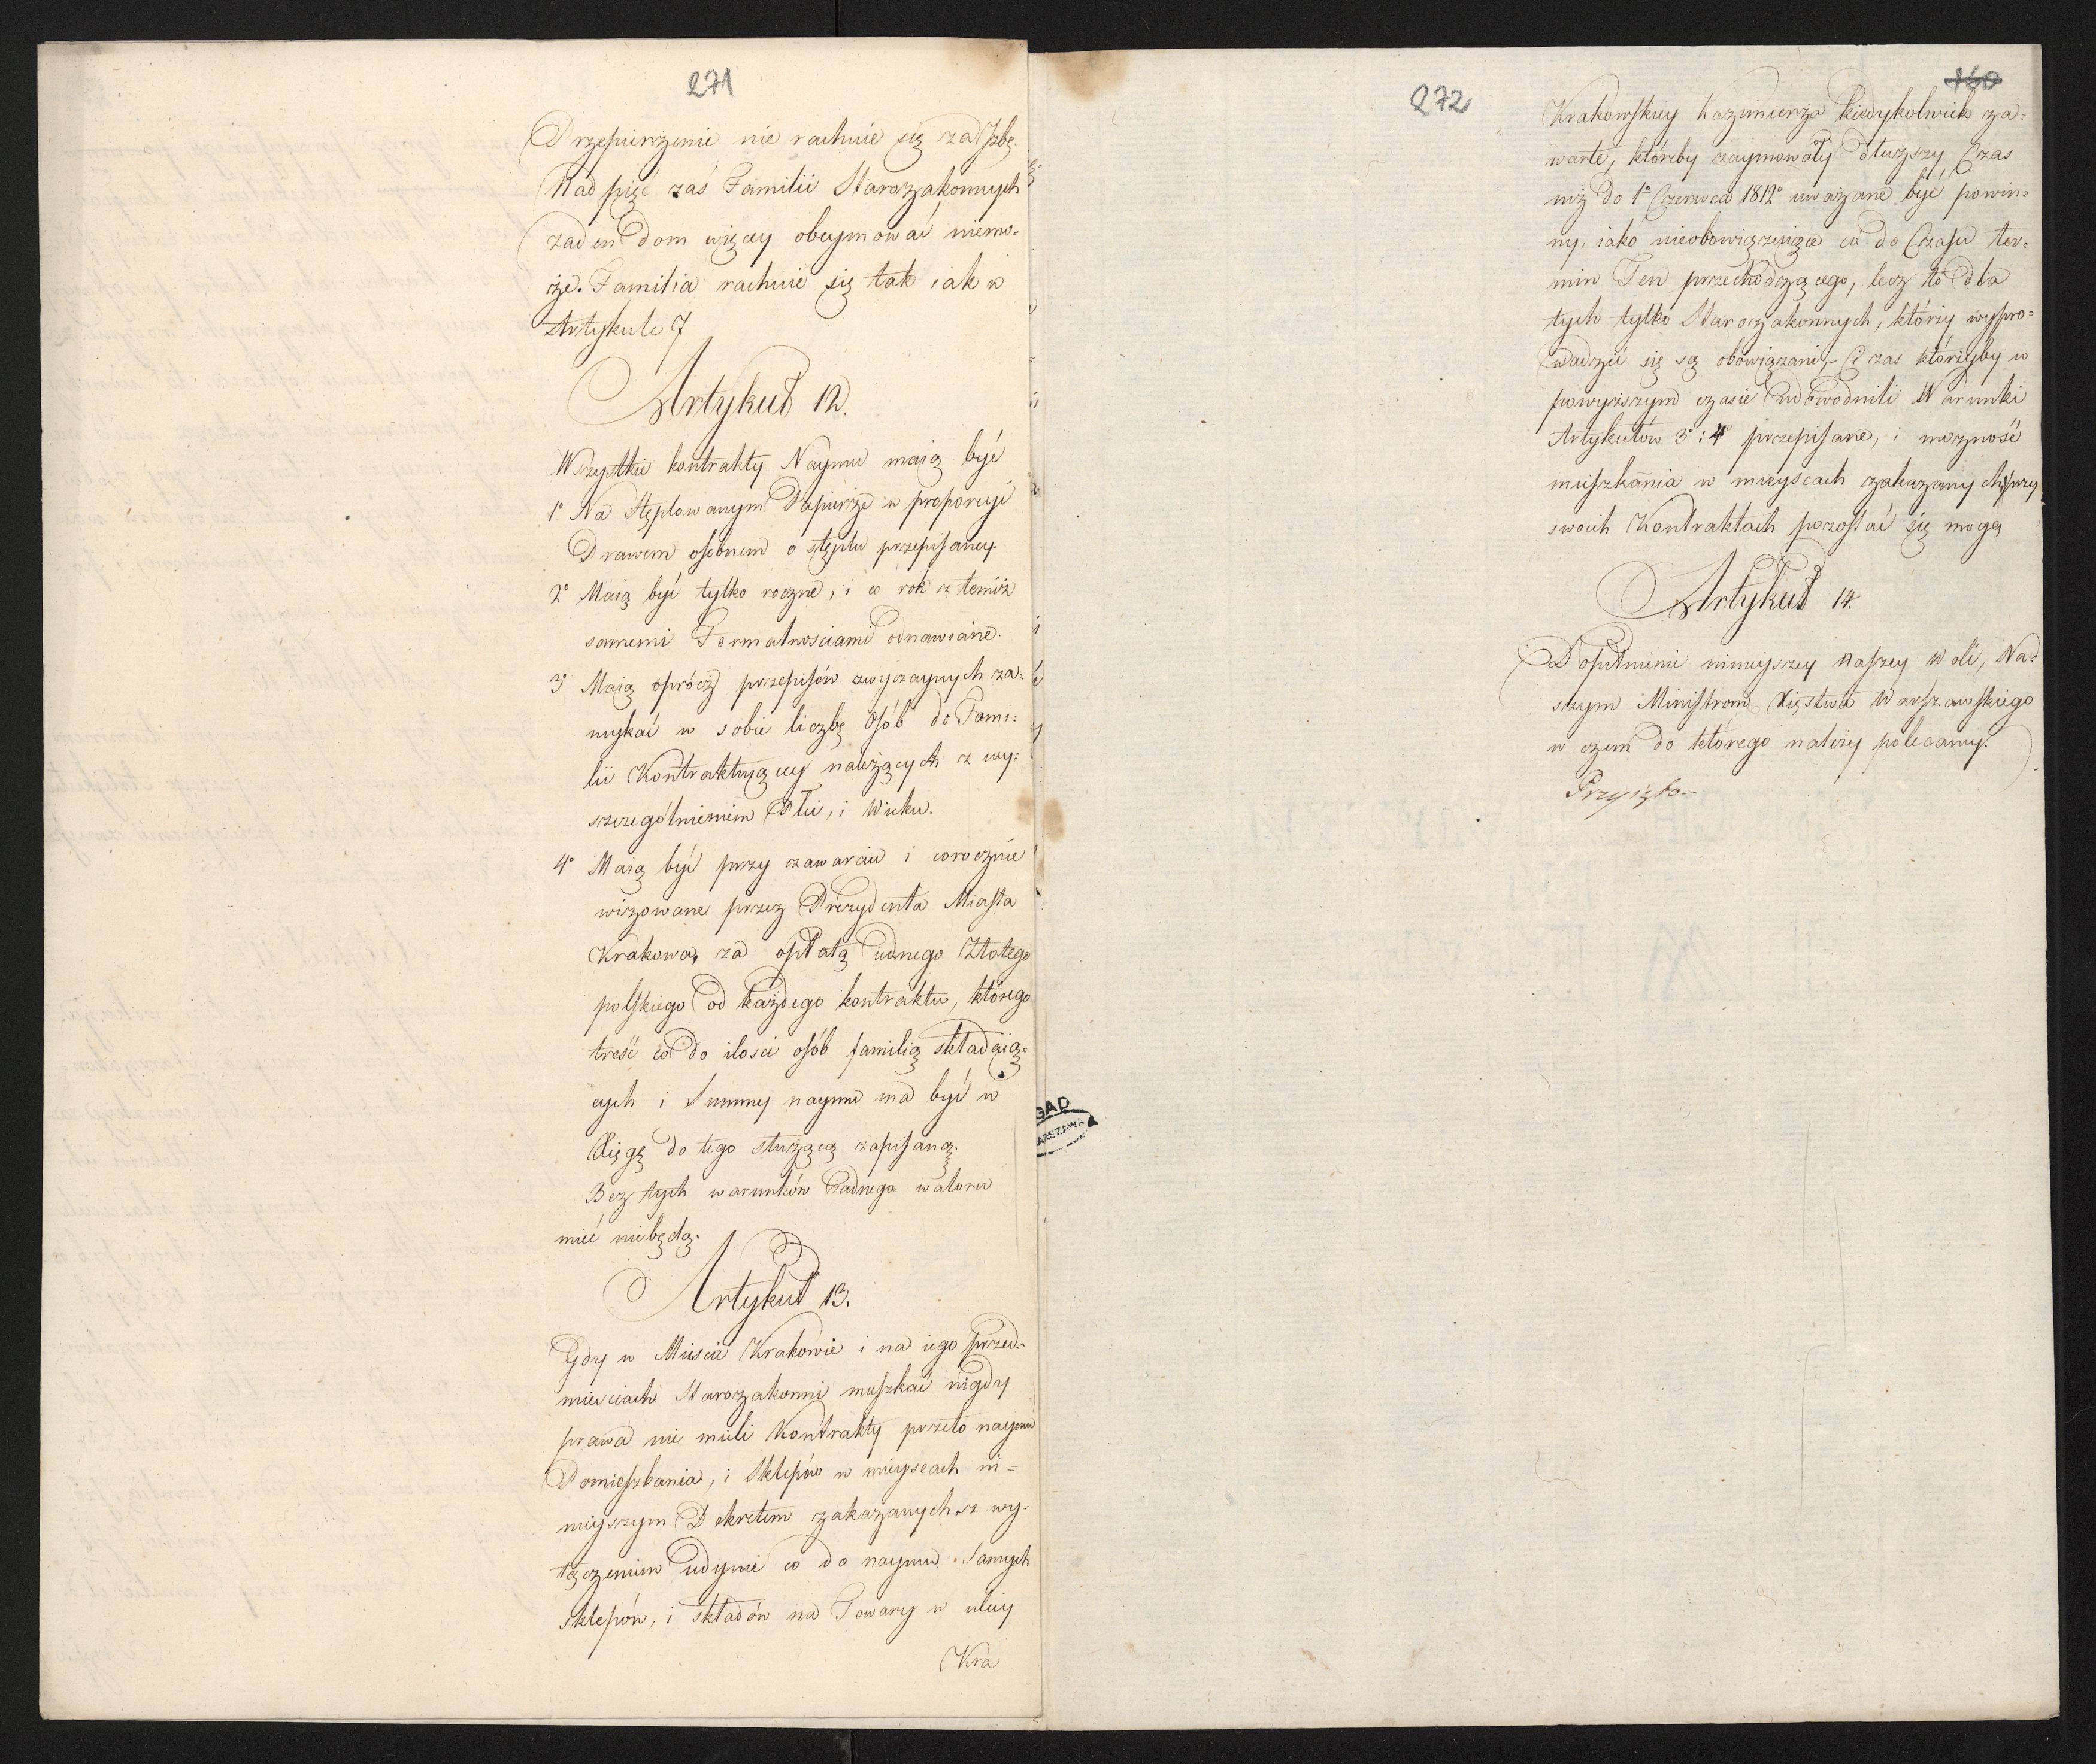 271
Przepierzenie nie rachuie się za Izbę
Nad pięć zaś Familii Starozakonnych
żaden dom więcey obeymować niemo-
że. Familia rachuie się tak iak w
Artykule 7
Artykuł 12.
Wszystkie kontrakty Naymu maią być
1º Na Stęplowanym Papierze w proporcyi
Prawem osobnem o stęplu przepisaney.
2º Maią być tylko roczne, i co rok z temiż
samemi Formalnościami odnawiane.
3º Maią oprócz przepisów zwyczaynych za-
mykać w sobie liczbę Osób do Fami-
lii Kontraktuiącey należących z wy-
szczególnieniem Płci, i Wieku.
4º Maią być przy zawarciu i corocznie
wizowane przez Prezydenta Miasta
Krakowa, za opłatą iednego Złotego
polskiego od każdego kontraktu, którego
treść co do ilosci osób familią składaią-
cych i Summy naymu ma być w
Xięgę do tego służącą zapisaną.
Bez tych warunków żadnego waloru
mieć niebędą.
Artykuł 13.
Gdy w Mieście Krakowie i na iego przed-
mieściach Starozakonni mieszkać nigdy
prawa nie mieli Kontrakty przeto naymu
Pomieszkania, i Sklepów w mieyscach ni-
nieyszym Dekretem zakazanych z wy-
łączeniem iedynie co do naymu Samych
Sklepów, i składów na Towary w ulicy
Kra
GAD
WARSZAWA
272
160
Krakowskiey Kazimierza kiedykolwiek za-
warte, któreby zaymowały dłuższy Czas
niż do 1º Czerwca 1812º uważane być powin-
ny, iako nieobowiązuiące co do Czasu ter-
min Ten przechodzącego, lecz to dla
tych tylko Starozakonnych, którzy wypro-
wadzić się są obowiązani, Ci zas którzyby w
powyższym czasie udowodnili Warunki
Artykułów 3º i 4º przepisane, i mozność
mieszkania w mieyscach zakazanych, przy
swoich Kontraktach pozostać się mogą
Artykuł 14.
Dopełnienie ninieyszey Naszey Woli, Na-
szym Ministrom Xięstwa Warszawskiego
w czem do którego należy polecamy.
Przyięto.